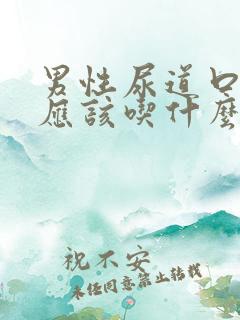 男性尿道口
應該喫什麼
祝不安
未經同意禁止轉載